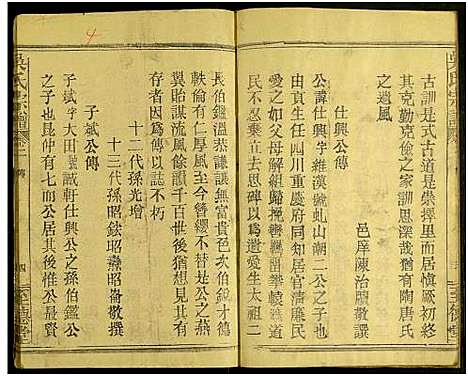 吳氏宗譜
古訓是式古道是崇擇里而居慎厥初終
其克勤克儉之家訓思深哉猶有陶唐氏
之遺風
邑庠陳治贈敬譔
仕興公傳
公諱仕興字維漢號虬山潮二公之子也
由貢生任四川重慶府同知居官清廉民
愛之如父母解組歸挽轡臥轍攀轅塞道
民不忍棄直去思碑以為遺愛生太祖二
長伯鑑溫恭謙讓無當貴邑次伯銳才德
軼倫有仁厚風至今簪纓不替是公之燕
翼貽謀流風餘韻千百世後猶想見其有
存者因為傳以誌不朽
十二代孫光增
十三代孫昭欽昭勳昭崙敬撰
子斌公傳
子斌字大田號誠軒仕興公之孫伯鑑公
之子也昆仲有七而公居其後惟公最賢
吳氏宗譜
四
至德堂
4